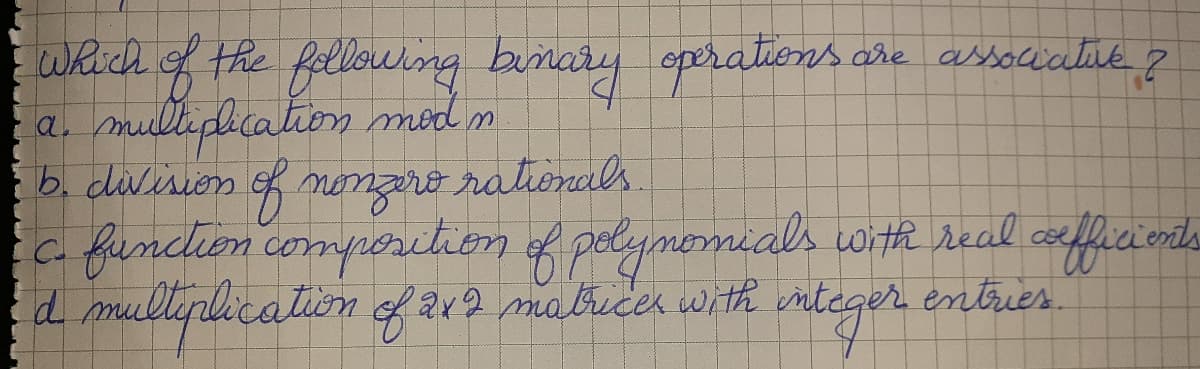 Which of the following binary operations are associative?
a. multiplication mod n
b. division of nonzero rationals.
c. function composition of polynomials with real coefficients
d. multiplication of 2x2 matrices with integer entries.